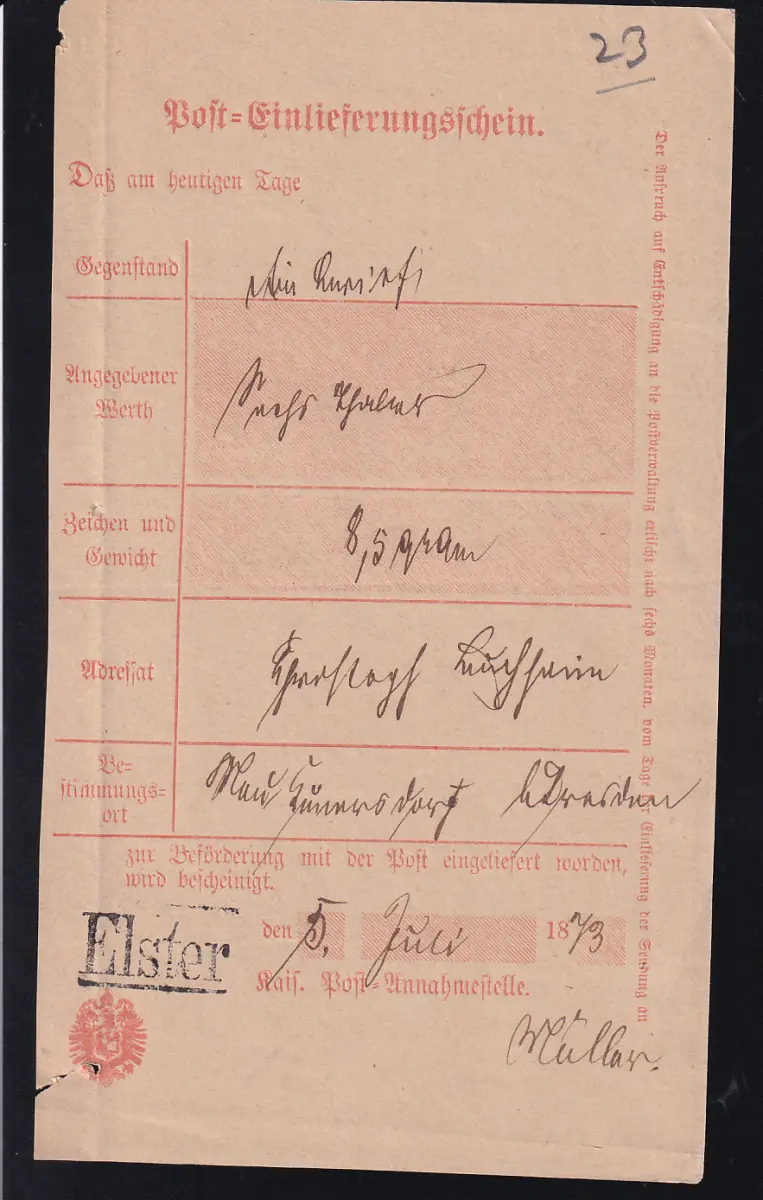 23
Post=Einlieferungsschein.
Daß am heutigen Tage
Gegenstand
ein
Angegebener
Werth
Sechs Thaler
Zeichen und
Gewicht
8,5 gram
Adressat
Christoph Buchheim
Be=
stimmungs=
ort
Neu Cunersdorf b Dresden
zur Beförderung mit der Post eingeliefert worden,
wird bescheinigt.
Elster
den 5. Juli 1873
Kais. Post=Annahmestelle.
Müller.
Der Anspruch auf Entschädigung an die Postverwaltung erlischt nach sechs Monaten, vom Tage der Einlieferung der Sendung an